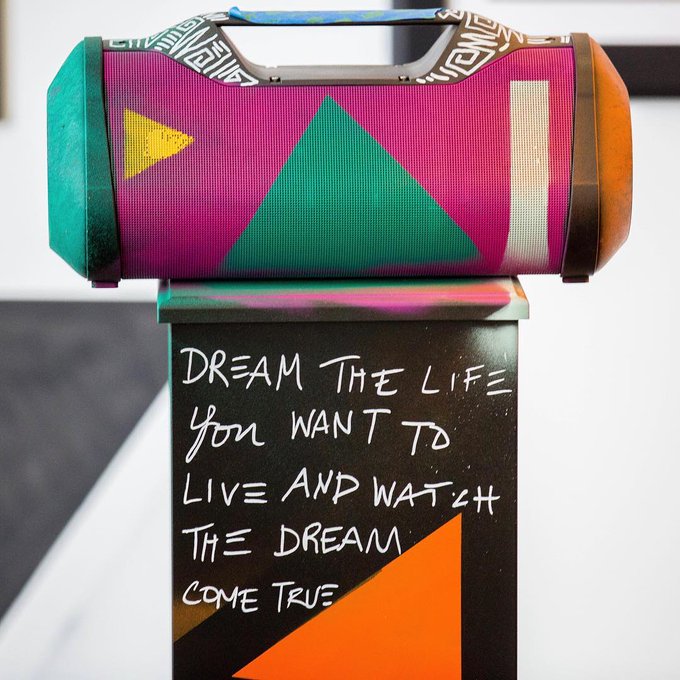 DREAM THE LIFE
you WANT TO
LIVE AND WATCH
THE DREAM
COME TRUE